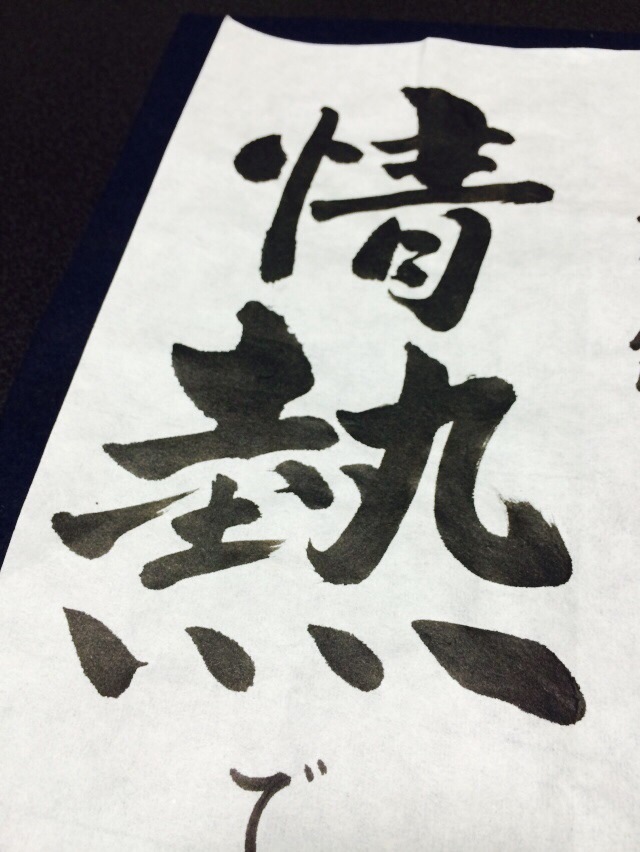 情熱で